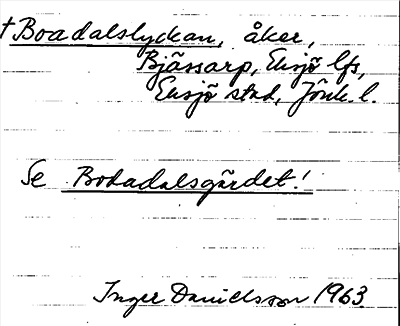 †Boadalslyckan, åker,
Bjässarp, Eksjö lfs,
Eksjö stad, Jönk. l.
Se Bodadalsgärdet!
Inger Danielsson 1963